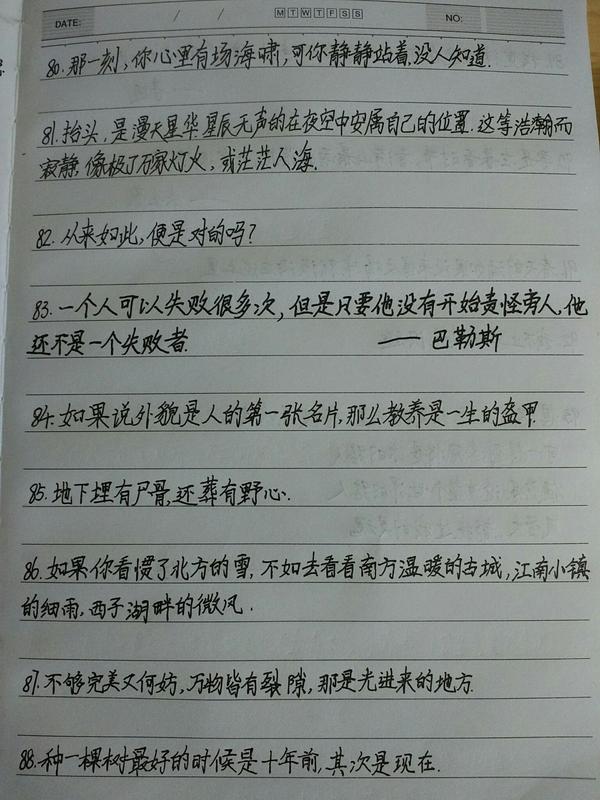 DATE: / / MTWTFSS NO:
80. 那一刻,你心里有场海啸,可你静静站着,没人知道.
81. 抬头,是漫天星华.星辰无声的在夜空中安属自己的位置.这等浩瀚而
寂静,像极了万家灯火,或茫茫人海.
82. 从来如此,便是对的吗?
83. 一个人可以失败很多次,但是只要他没有开始责怪旁人,他
还不是一个失败者. —— 巴勒斯
84. 如果说外貌是人的第一张名片,那么教养是一生的盔甲.
85. 地下埋有尸骨,还葬有野心.
86. 如果你看惯了北方的雪,不如去看看南方温暖的古城,江南小镇
的细雨,西子湖畔的微风.
87. 不够完美又何妨,万物皆有裂隙,那是光进来的地方.
88. 种一棵树最好的时候是十年前,其次是现在.